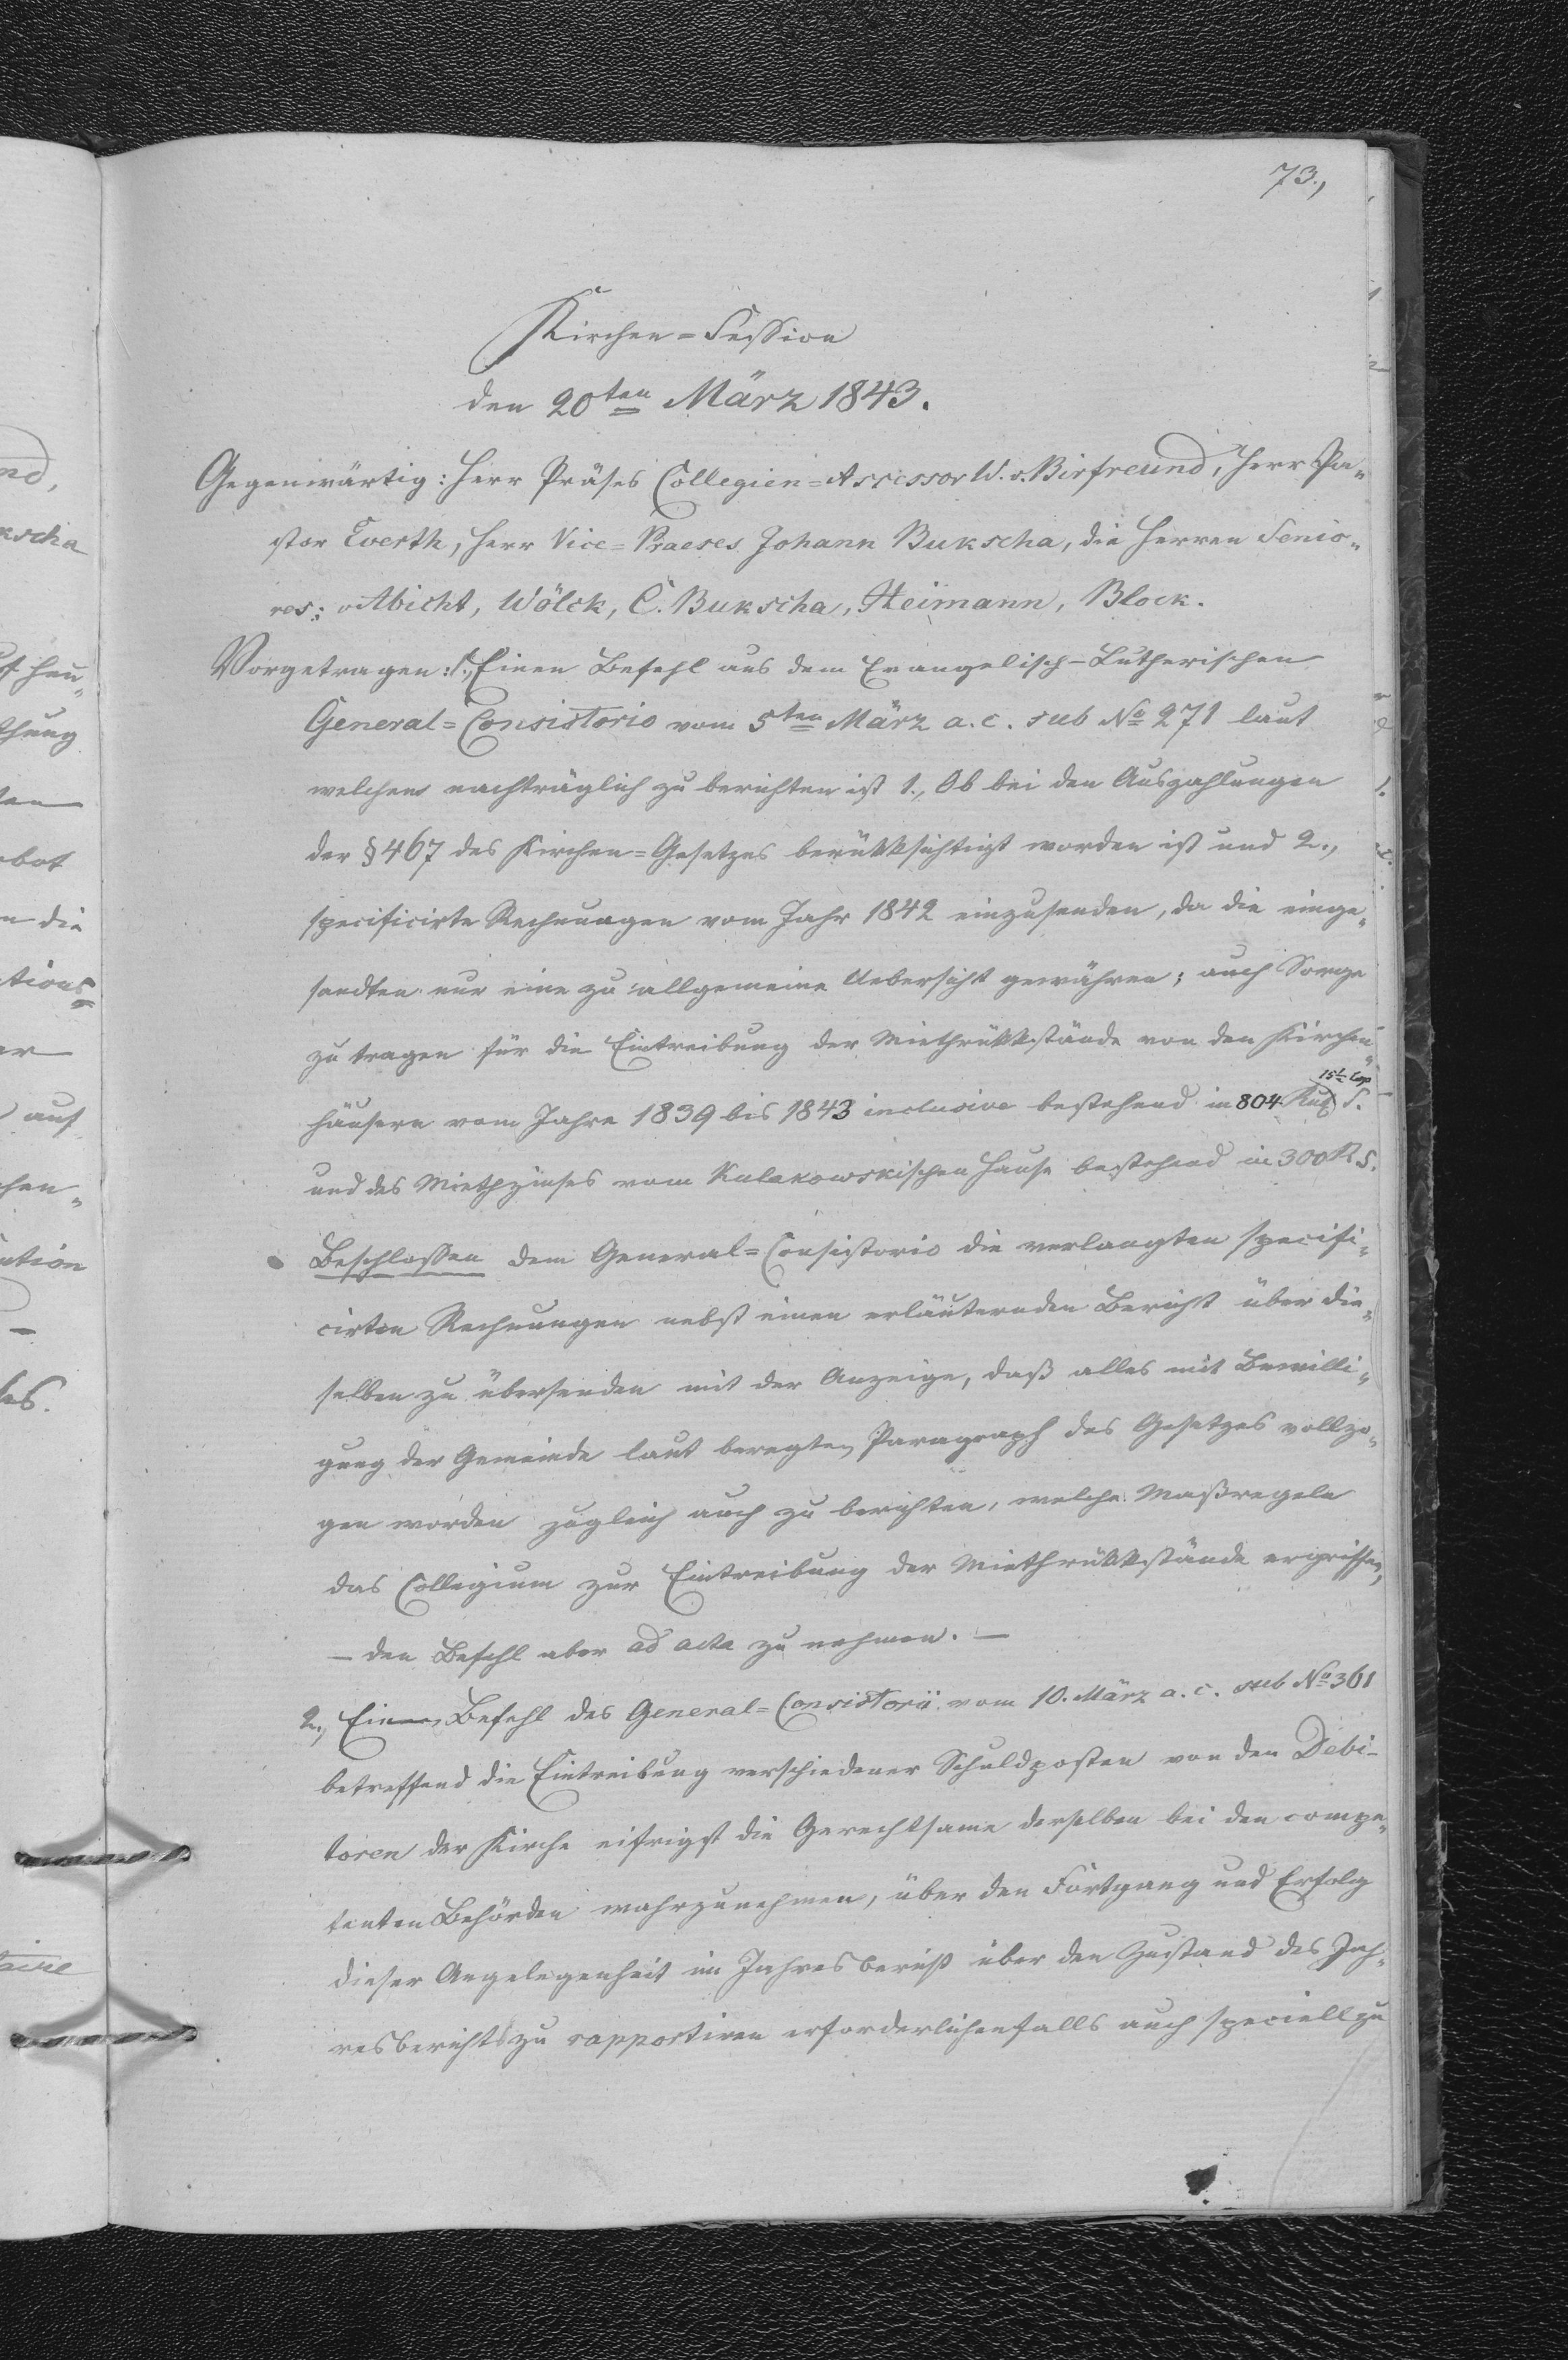 73.,
Kirchen=Session
den 20ten März 1843.
Gegenwärtig: Herr Präses Collegien=Assessor W. v. Birfreund, Herr Pa„
stor Everth, Herr Vice=Praeses Johann Bukscha, die Herren Senio„
res: Abicht, Wölck, C. Bukscha, Heimann, Block.
Vorgetragen: 1., Einen Befehl aus dem Evangelisch-Lutherischen
General=Consistorio vom 5ten März a. c. sub No 271 laut
welchem nachträglich zu berichten ist 1., Ob bei den Auszahlungen
der § 467 des Kirchen=Gesetzes berükksichtigt worden ist und 2.,
specificirte Rechnungen vom Jahr 1842 einzusenden, da die einge„
sandten nur eine zu allgemeine Uebersicht gewähren; auch Sorge
zu tragen für die Eintreibung der Miethrükkstände von den Kirchen„
häusern vom Jahre 1839 bis 1843 inclusive bestehend in 804 Rub 15½ Cop S.
und des Miethzinses vom Kulakowskischen Hause bestehend in 300 R. S.
Beschlossen dem General=Consistorio die verlangten specifi„
cirten Rechnungen nebst einen erläuternden Bericht über die„
selben zu übersenden mit der Anzeige, daß alles mit Bewilli„
gung der Gemeinde laut beregten Paragraph des Gesetzes vollzo„
gen worden zugleich auch zu berichten, welche Maßregeln
das Collegium zur Eintreibung der Miethrükkstände ergriffen,
— den Befehl aber ad acta zu nehmen. —
2., Einen Befehl des General=Consistorii vom 10. März a. c. sub No 361
betreffend die Eintreibung verschiedener Schuldposten von den Debi-
toren der Kirche eifrigst die Gerechtsame derselben bei den compe„
tenten Behörden wahrzunehmen, über den Fortgang und Erfolg
dieser Angelegenheit im Jahresbericht über den Zustand des Jah„
resberichts zu rapportiren erforderlichenfalls auch speciell zu